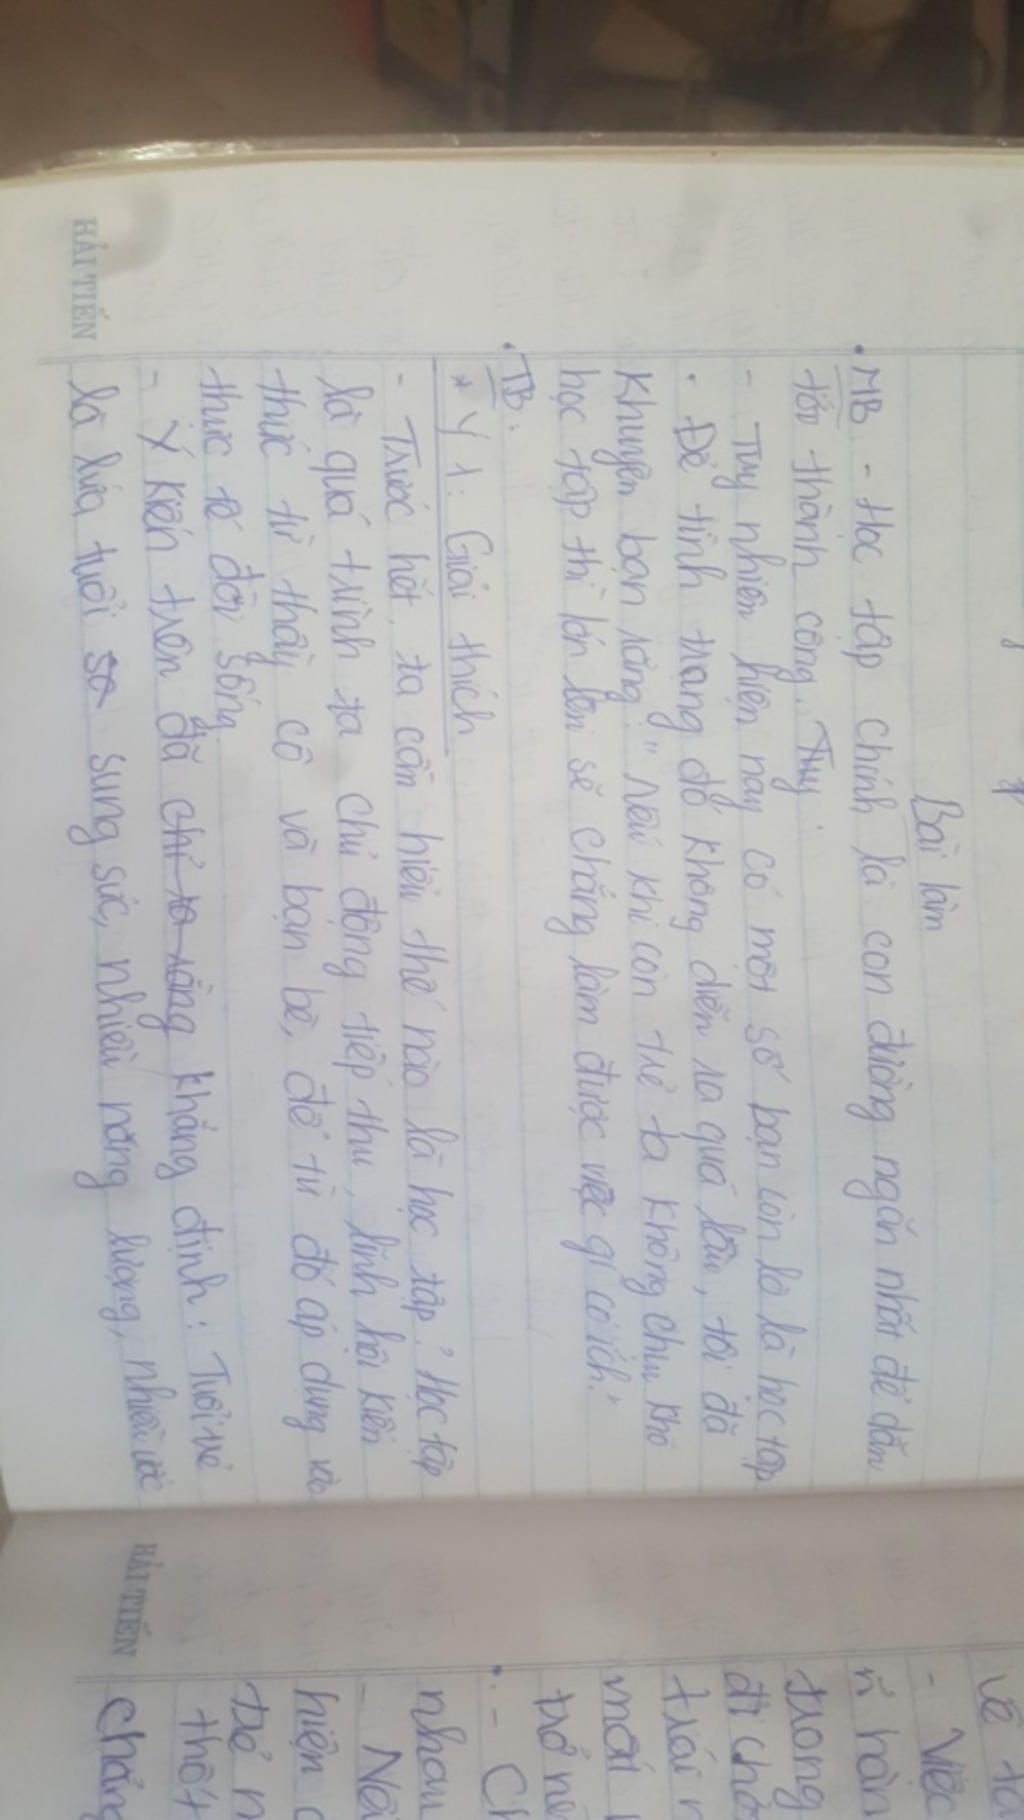 Bài làm
• MB - Học tập chính là con đường ngắn nhất để dẫn
tới thành công. Tuy
- Tuy nhiên hiện nay có một số bạn còn lơ là học tập
• Để tình trạng đó không diễn ra quá lâu, tôi đã
khuyên bạn rằng " Nếu khi còn trẻ ta không chịu khó
học tập thì lớn lên sẽ chẳng làm được việc gì có ích."
• TB:
* Ý 1: Giải thích
- Trước hết, ta cần hiểu thế nào là học tập? Học tập
là quá trình ta chủ động tiếp thu, lĩnh hội kiến
thức từ thầy cô và bạn bè, để từ đó áp dụng vào
thực tế đời sống
- Ý kiến trên đã chỉ ra rằng khẳng định: Tuổi trẻ
là lứa tuổi sung sức, nhiều năng lượng, nhiều ước
HẢI TIẾN
về
- Việc
trong
đi
trái
mới
trở
• - Ch
nhau
- Nếu
hiện
thốt
chẳng
HẢI TIẾN